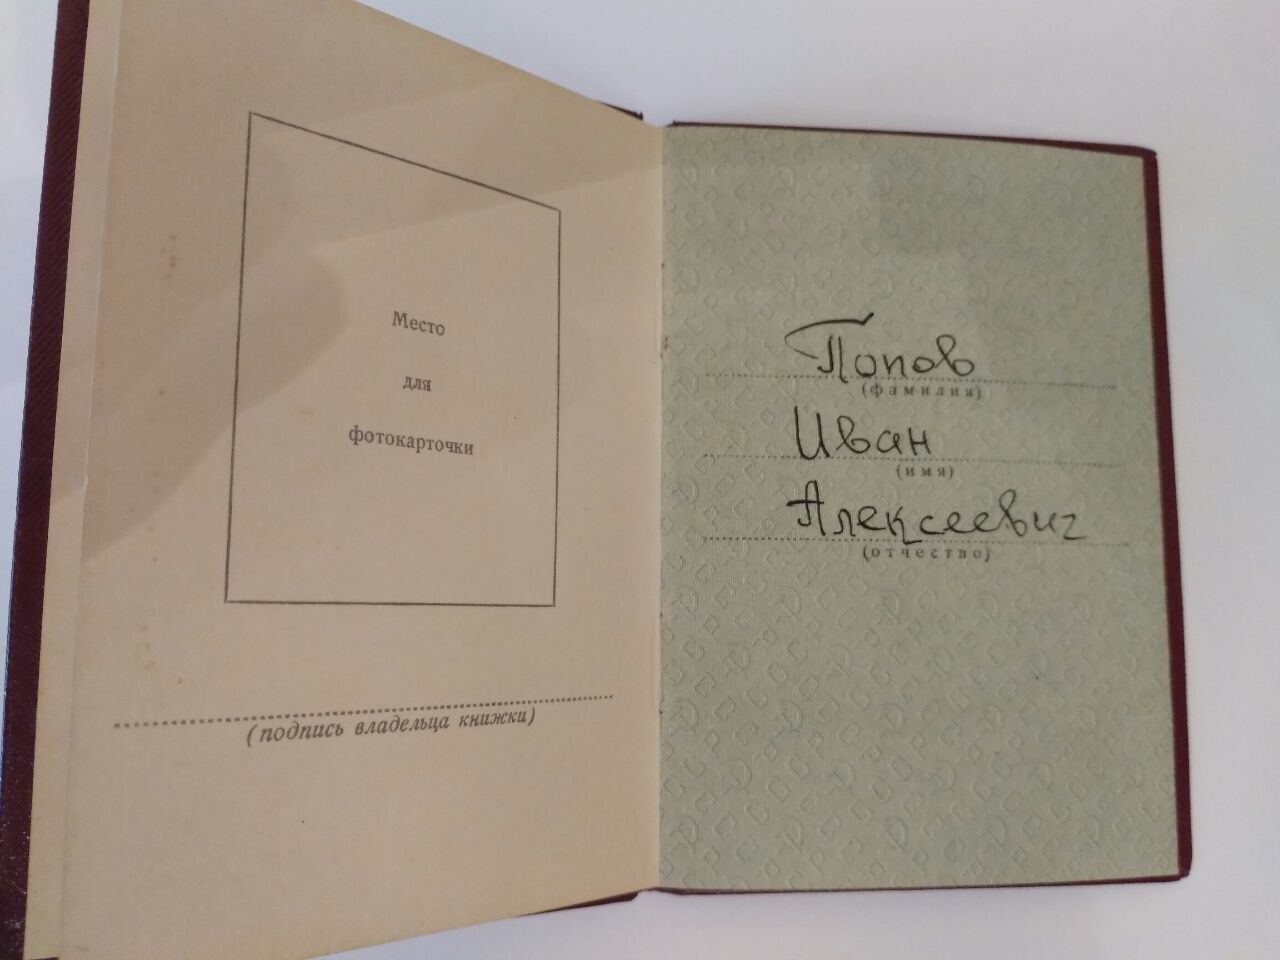 Место
для
фотокарточки
(подпись владельца книжки)
Попов
(фамилия)
Иван
(имя)
Алексеевич
(отчество)